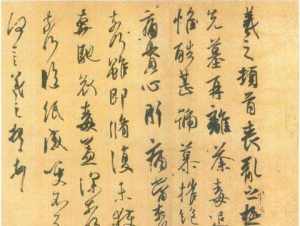 羲之頓首喪亂之極
先墓再離荼毒追
惟酷甚號慕摧絕
痛貫心肝痛當奈
何雖即脩復未獲
奔馳哀毒益深奈
何臨紙感哽不知
何言羲之頓首